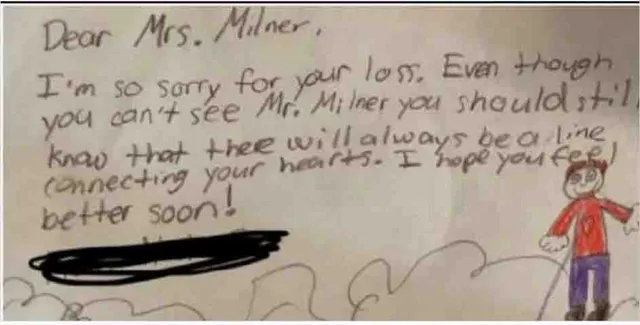 Dear Mrs. Milner,
I'm so sorry for your loss. Even though
you can't see Mr. Milner you should stil
know that thee will always be a line
connecting your hearts. I hope you feel
better soon!